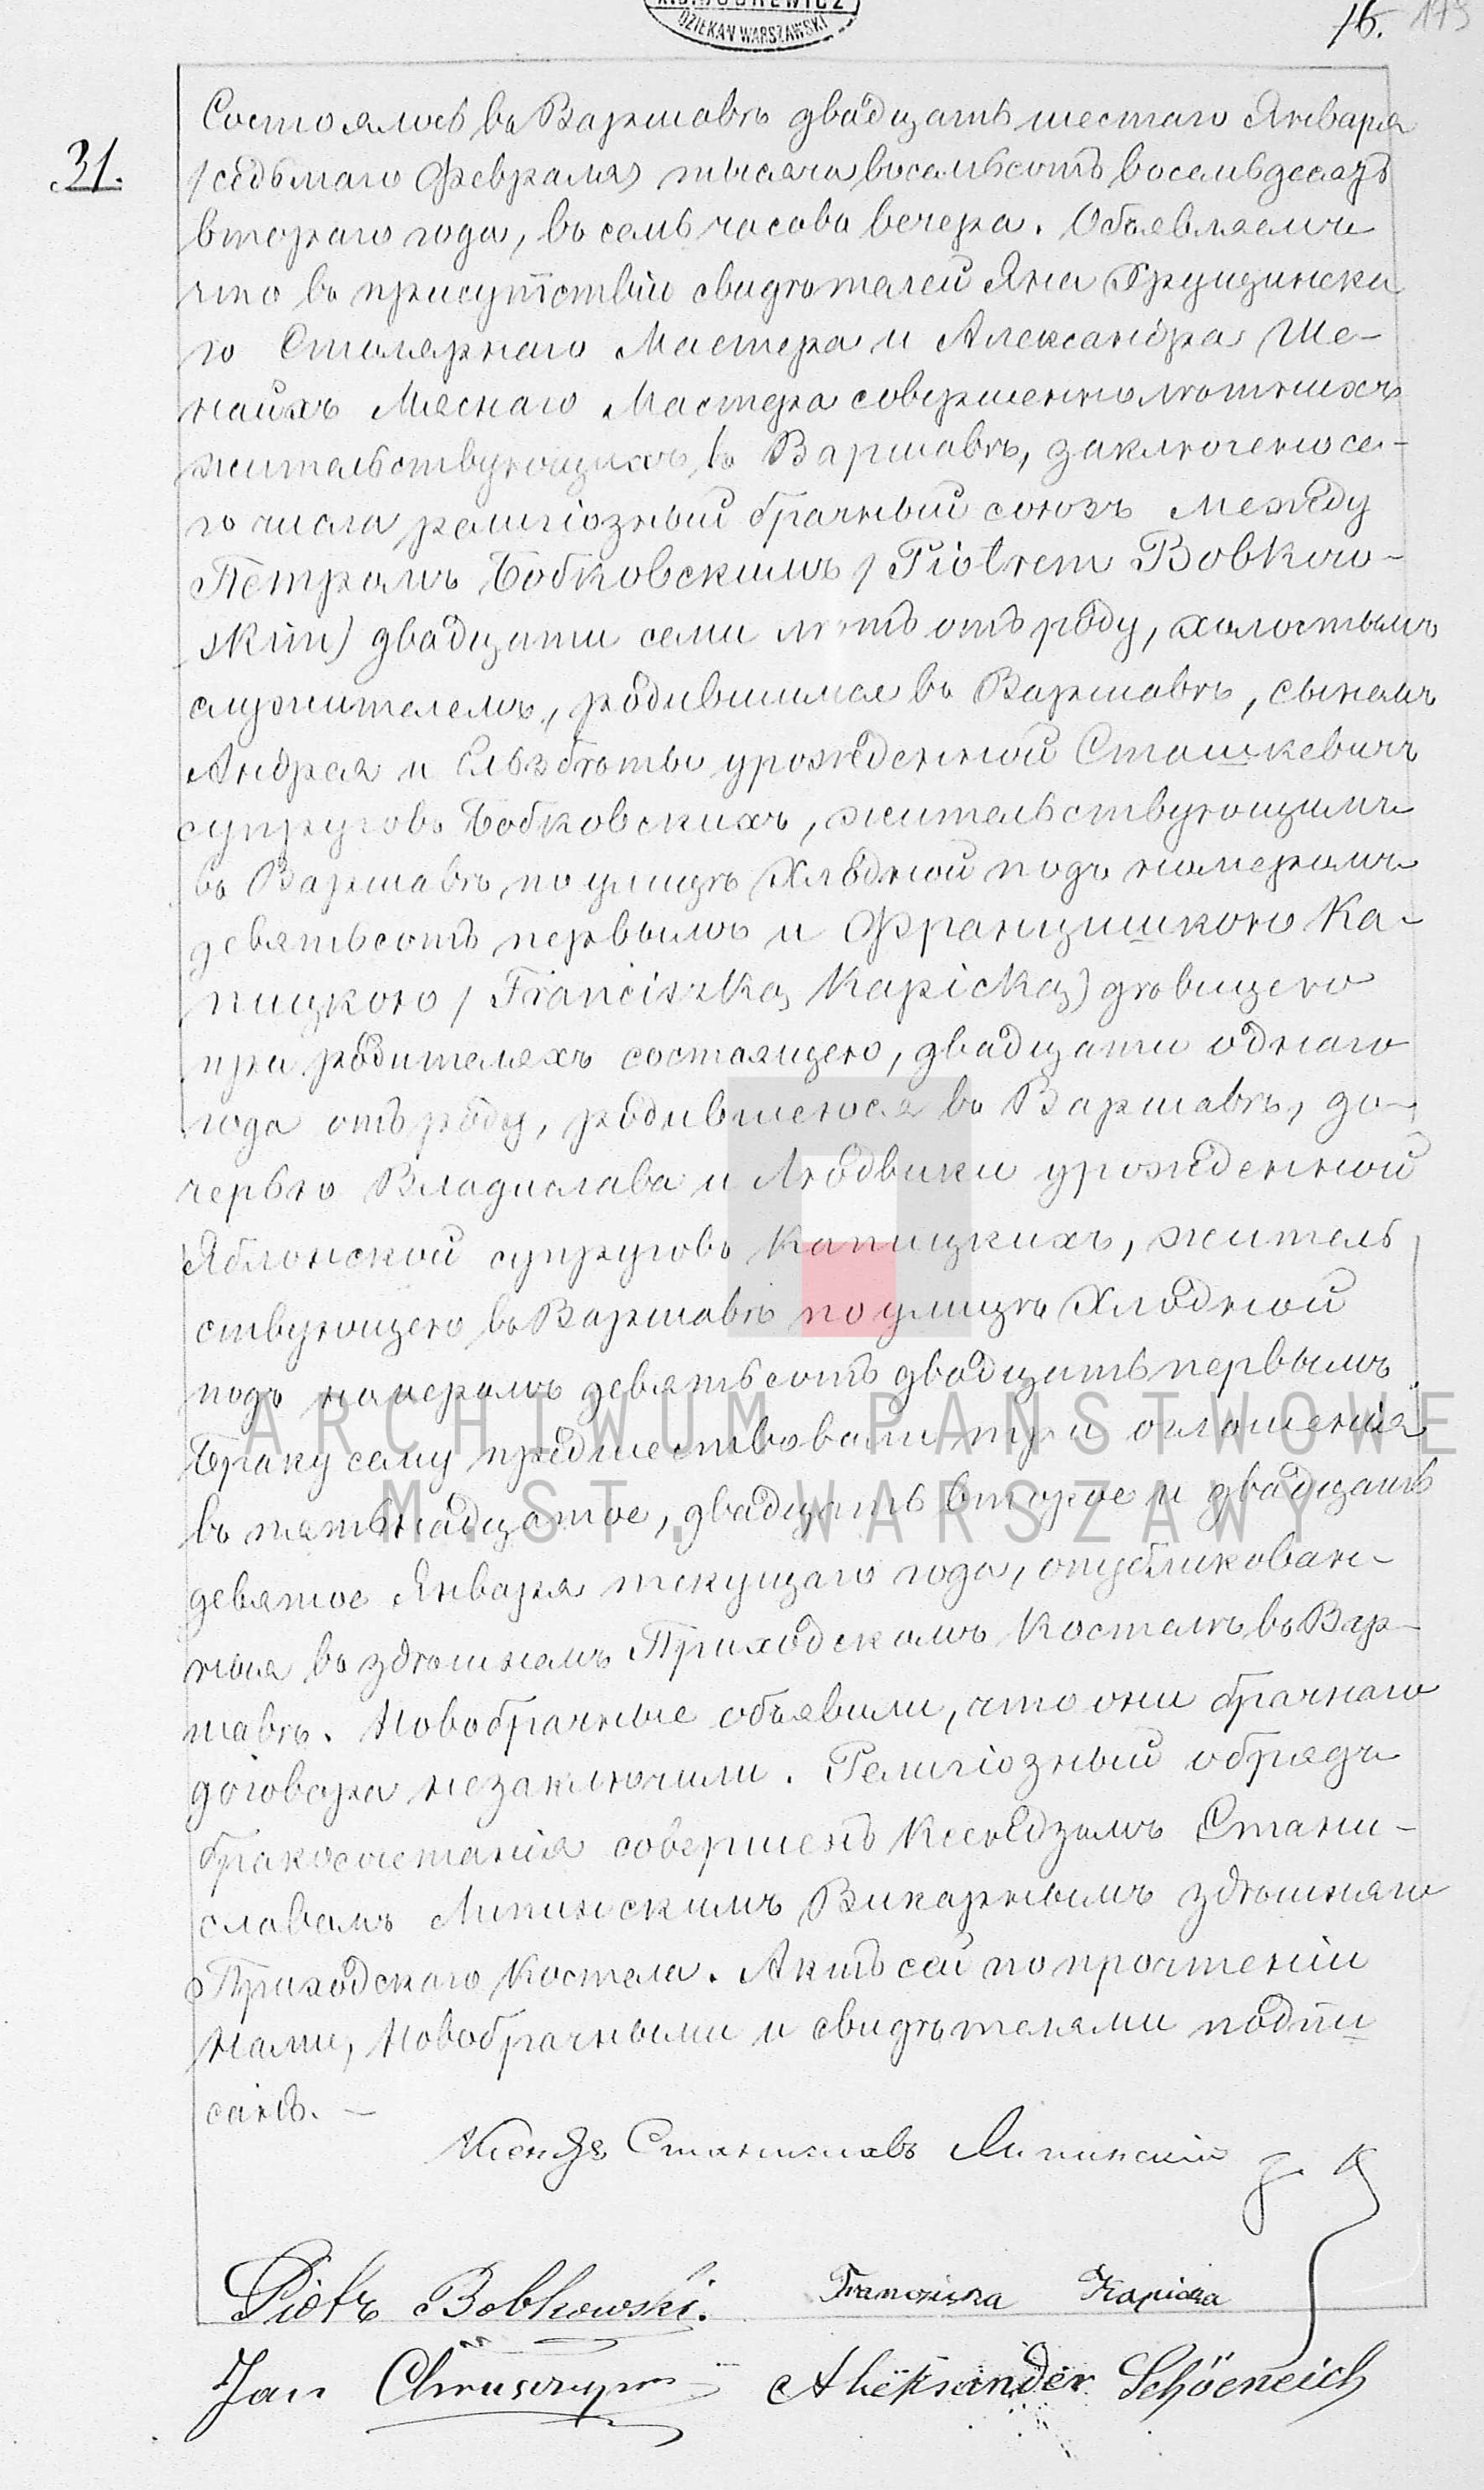 DZIEKAN WARSZAWSKI
16. 173
31.
Состоялось въ Варшавѣ двадцать шестаго Января
/седьмаго Февраля) тысяча восемьсотъ восемьдесятъ
втораго года, въ семь часовъ вечера. Объявляемъ
что въ присутствіи свидѣтелей Яна Хрущински
го Столярнаго Мастера и Александра Ше-
найхъ Мяснаго Мастера совершеннолѣтнихъ
жительствующихъ въ Варшавѣ, заключено се-
го числа религіозный брачный союзъ между
Петромъ Бобковскимъ / Piotrem Bobkow-
skim) двадцати семи лѣтъ отъ роду, холостымъ
служителемъ, родившимся въ Варшавѣ, сыномъ
Андрея и Ельжбѣты урожденной Сташкевичъ
супруговъ Бобковскихъ, жительствующимъ
въ Варшавѣ по улицѣ Хлодной подъ номеромъ
девятьсотъ первымъ и Францишкою Ка-
пицкою / Franciszką Kapicką) дѣвицею
при родителяхъ состоящею, двадцати одного
года отъ роду, родившеюся въ Варшавѣ, до-
черью Владислава и Людвики урожденной
Яблонской супруговъ Капицкихъ, житель
ствующею въ Варшавѣ по улицѣ Хлодной
подъ номеромъ девятьсотъ двадцать первымъ
Браку сему предшествовали три оглашенія
въ пятьнадцатое, двадцать второе и двадцать
девятое Января текущаго года, опубликован-
ныя въ здѣшнемъ Приходскомъ Костелѣ въ Вар-
шавѣ. Новобрачные объявили, что они брачнаго
договора незаключили. Религіозный обрядъ
бракосочетанія совершенъ Ксендзомъ Стани-
славомъ Липинскимъ Викарнымъ здѣшняго
Приходскаго Костела. Актъ сей по прочтеніи
нами, новобрачными и свидѣтелями подпи
санъ. —
Ксендзъ Станиславъ Липинскій
Piotr Bobkowski. Franciszka Kapicka
Jan Aleksander Schöeneich
ARCHIWUM PAŃSTWOWE
M. ST. WARSZAWY